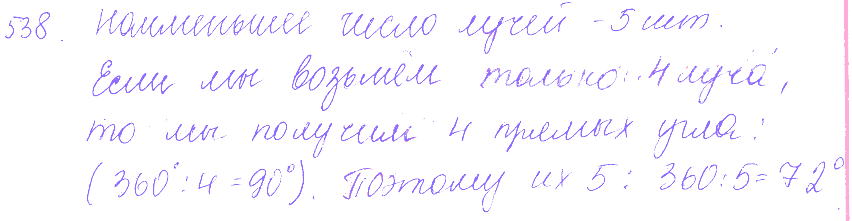 538. Наименьшее число лучей - 5 шт.
Если мы возьмём только 4 луча,
то мы получим 4 прямых угла:
(360°:4=90°). Поэтому их 5: 360:5=72°